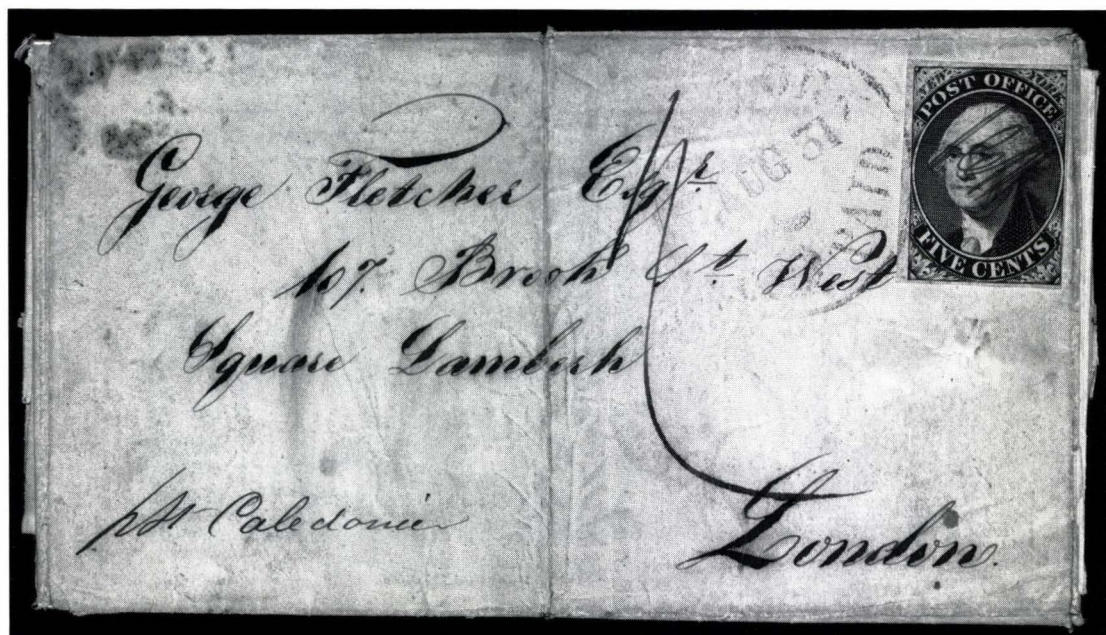 POST OFFICE
FIVE CENTS
AUG 31
PAID
George Fletcher Esqr
167. Brook St West
Square Lambeth
pSt Caledonia
London.